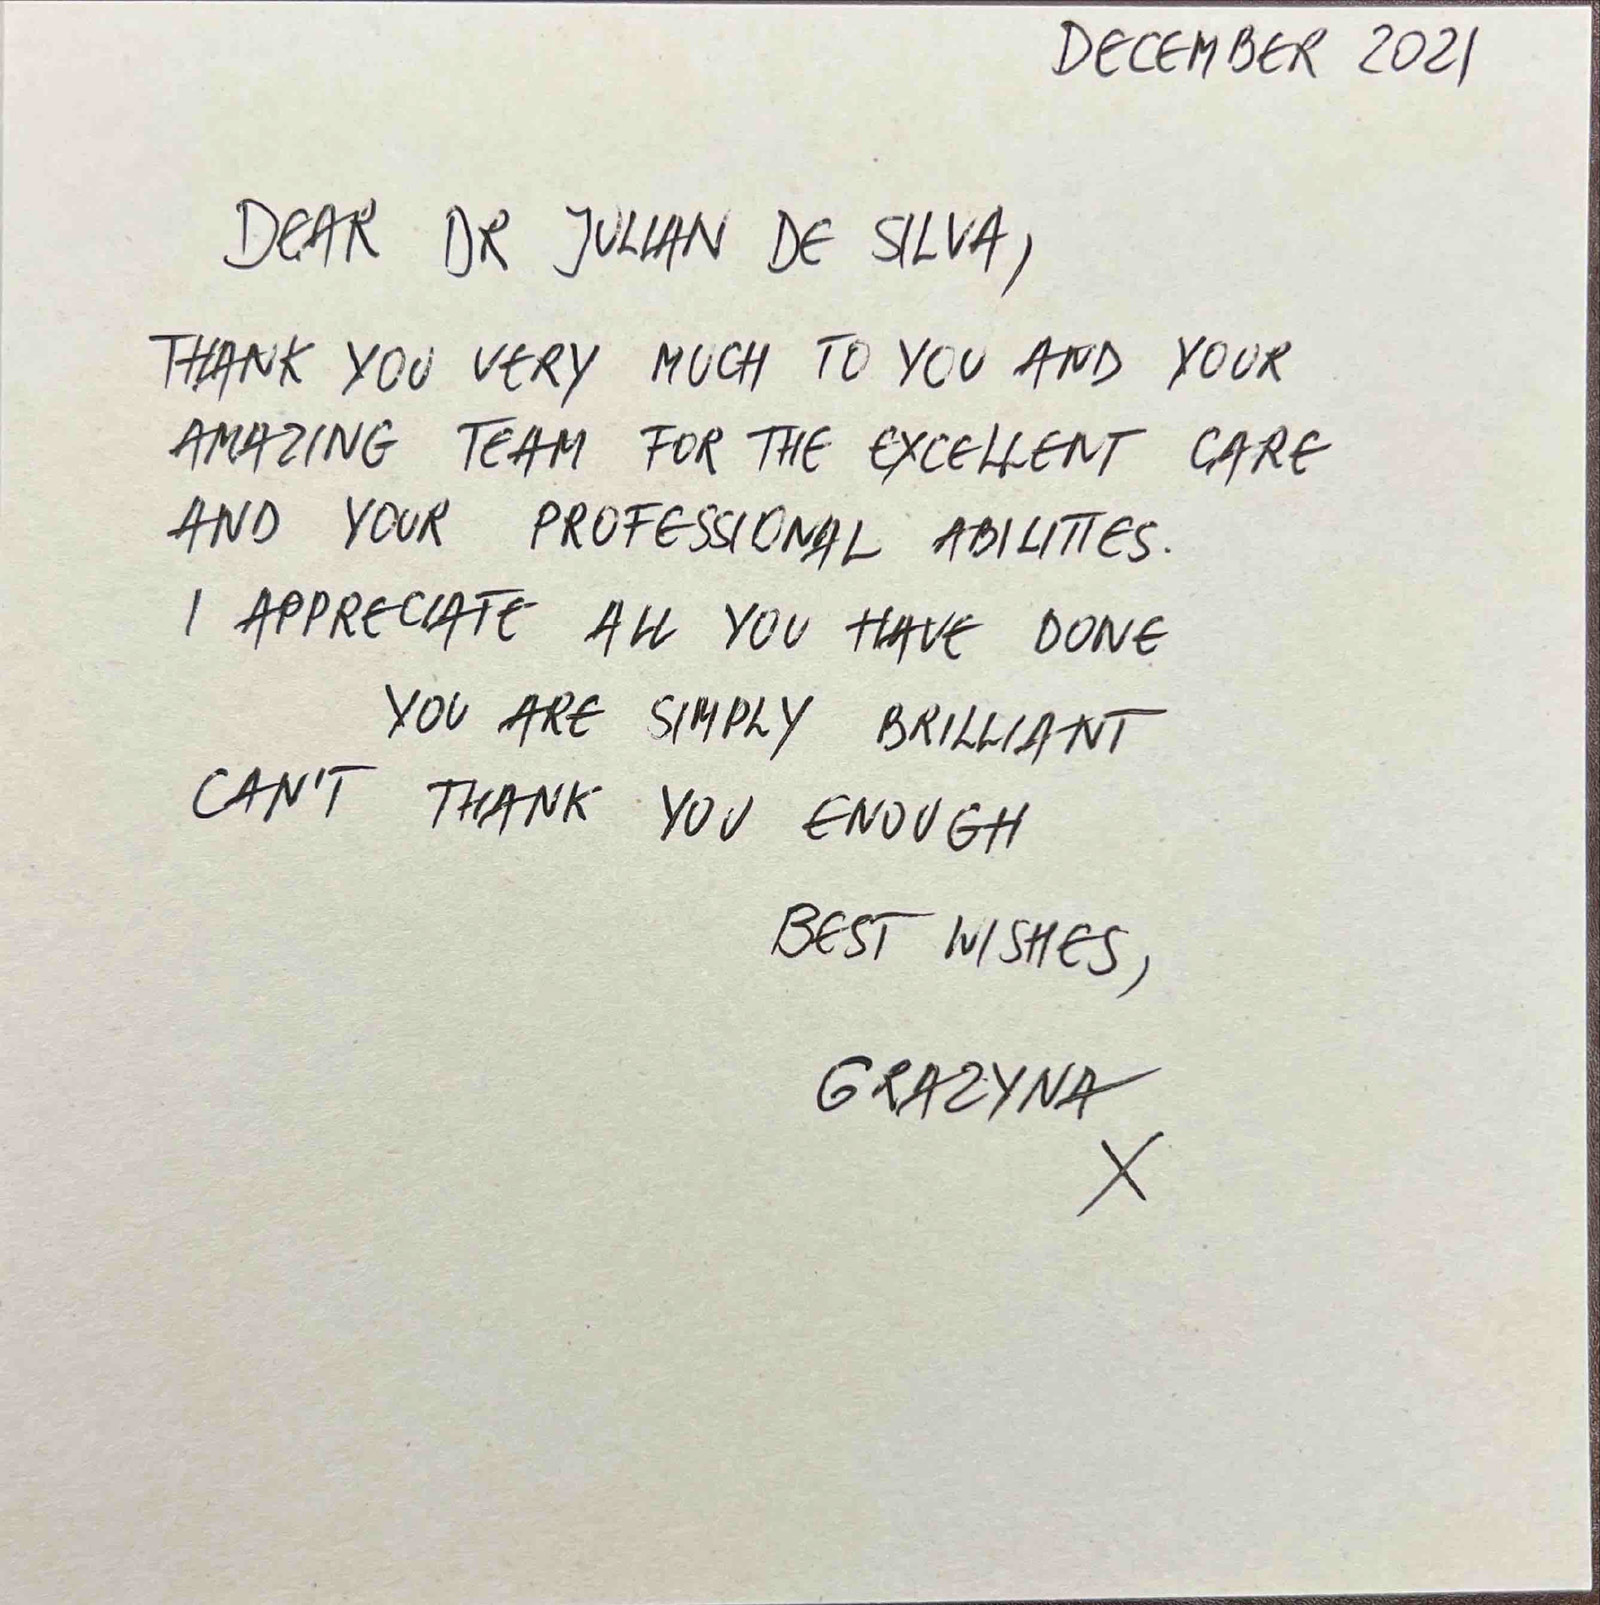 DECEMBER 2021
DEAR DR JULIAN DE SILVA,
THANK YOU VERY MUCH TO YOU AND YOUR
AMAZING TEAM FOR THE EXCELLENT CARE
AND YOUR PROFESSIONAL ABILITIES.
I APPRECIATE ALL YOU HAVE DONE
YOU ARE SIMPLY BRILLIANT
CAN'T THANK YOU ENOUGH
BEST WISHES,
GRAZYNA
X